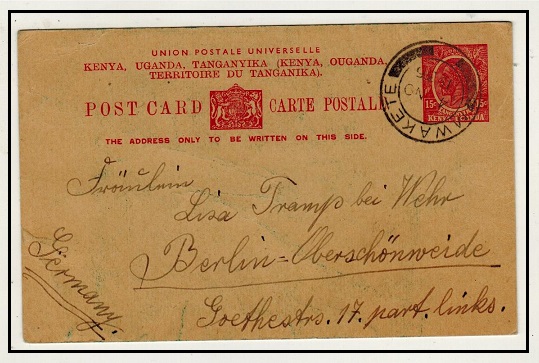 UNION POSTALE UNIVERSELLE
KENYA, UGANDA, TANGANYIKA (KENYA, OUGANDA,
TERRITOIRE DU TANGANIKA).
POST CARD CARTE POSTALE
THE ADDRESS ONLY TO BE WRITTEN ON THIS SIDE.
15c 15c
KENYA UGANDA
Fräulein
Lisa Tramp bei Wehr
Berlin-Oberschönweide
Goethestrs. 17. part. links.
Germany.